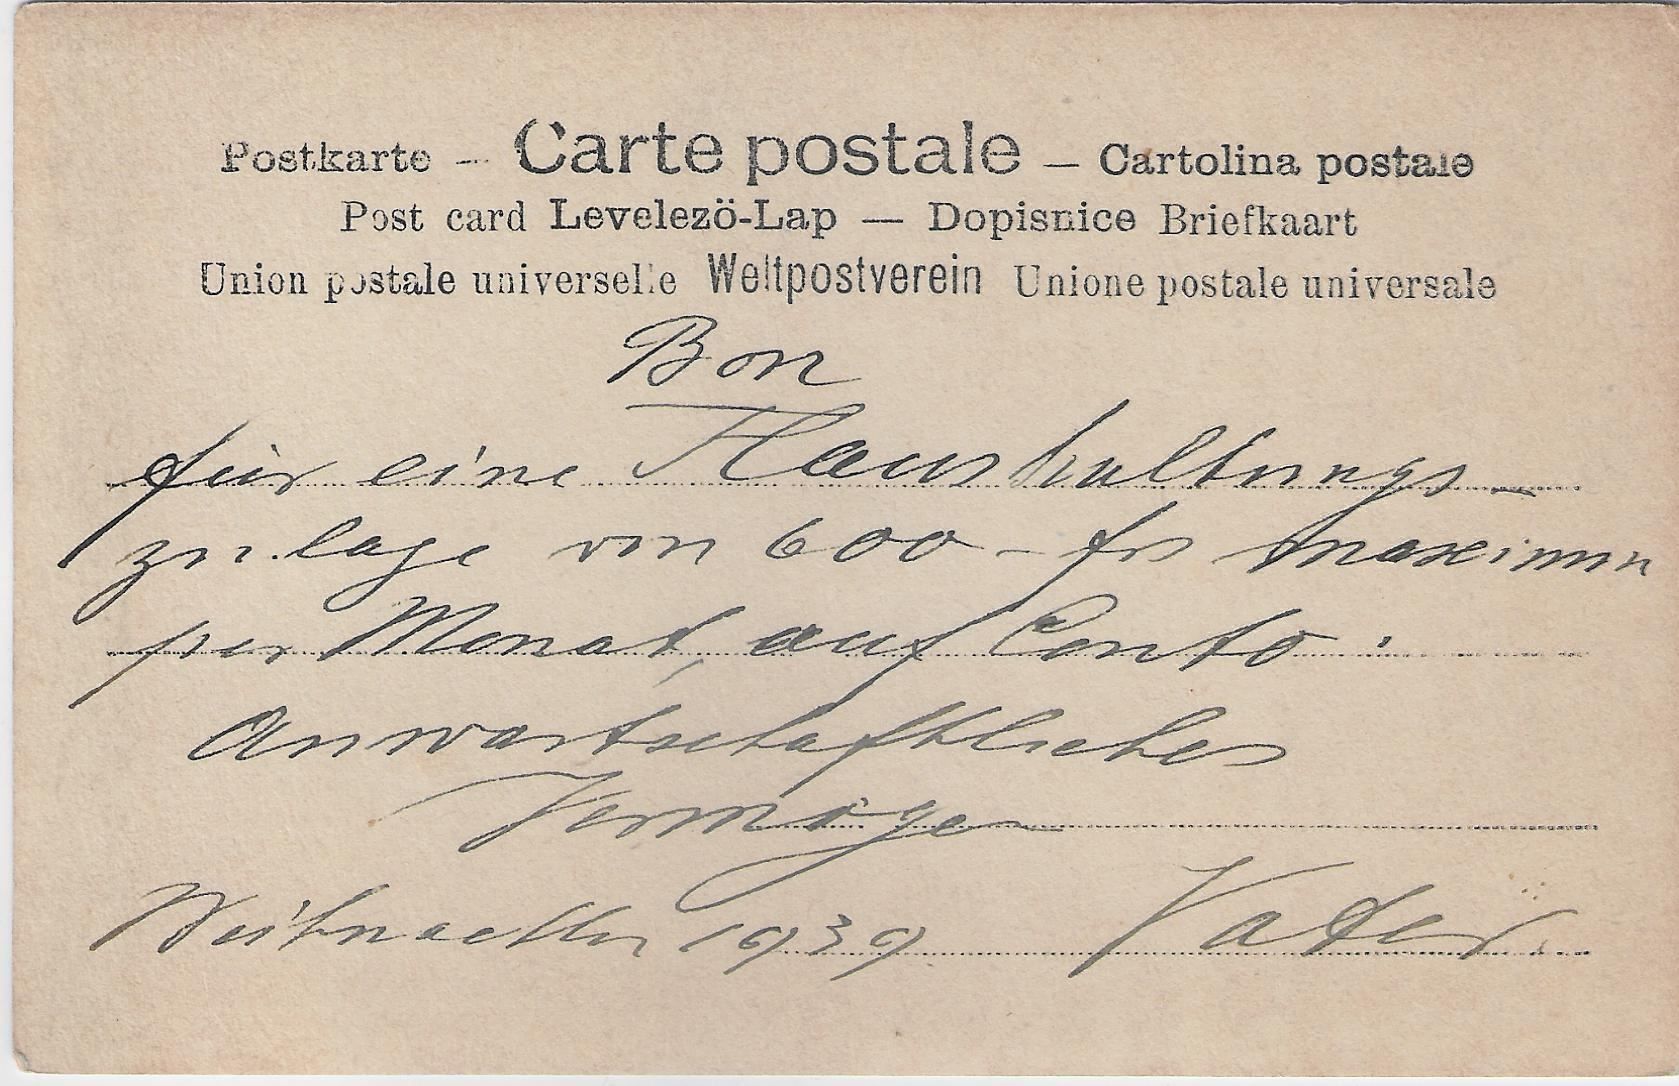 Postkarte – Carte postale – Cartolina postale
Post card Levelezö-Lap – Dopisnice Briefkaart
Union postale universelle Weltpostverein Unione postale universale
Bon
für eine Haushaltungs-
zulage von 600.- frs maximum
per Monat, auf Conto:
Anwartschaftliches
Vermögen
Weihnachten 1939 Vater.